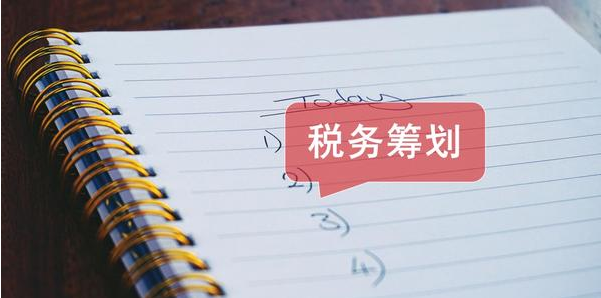 Today
1)
税务筹划
2)
3)
4)